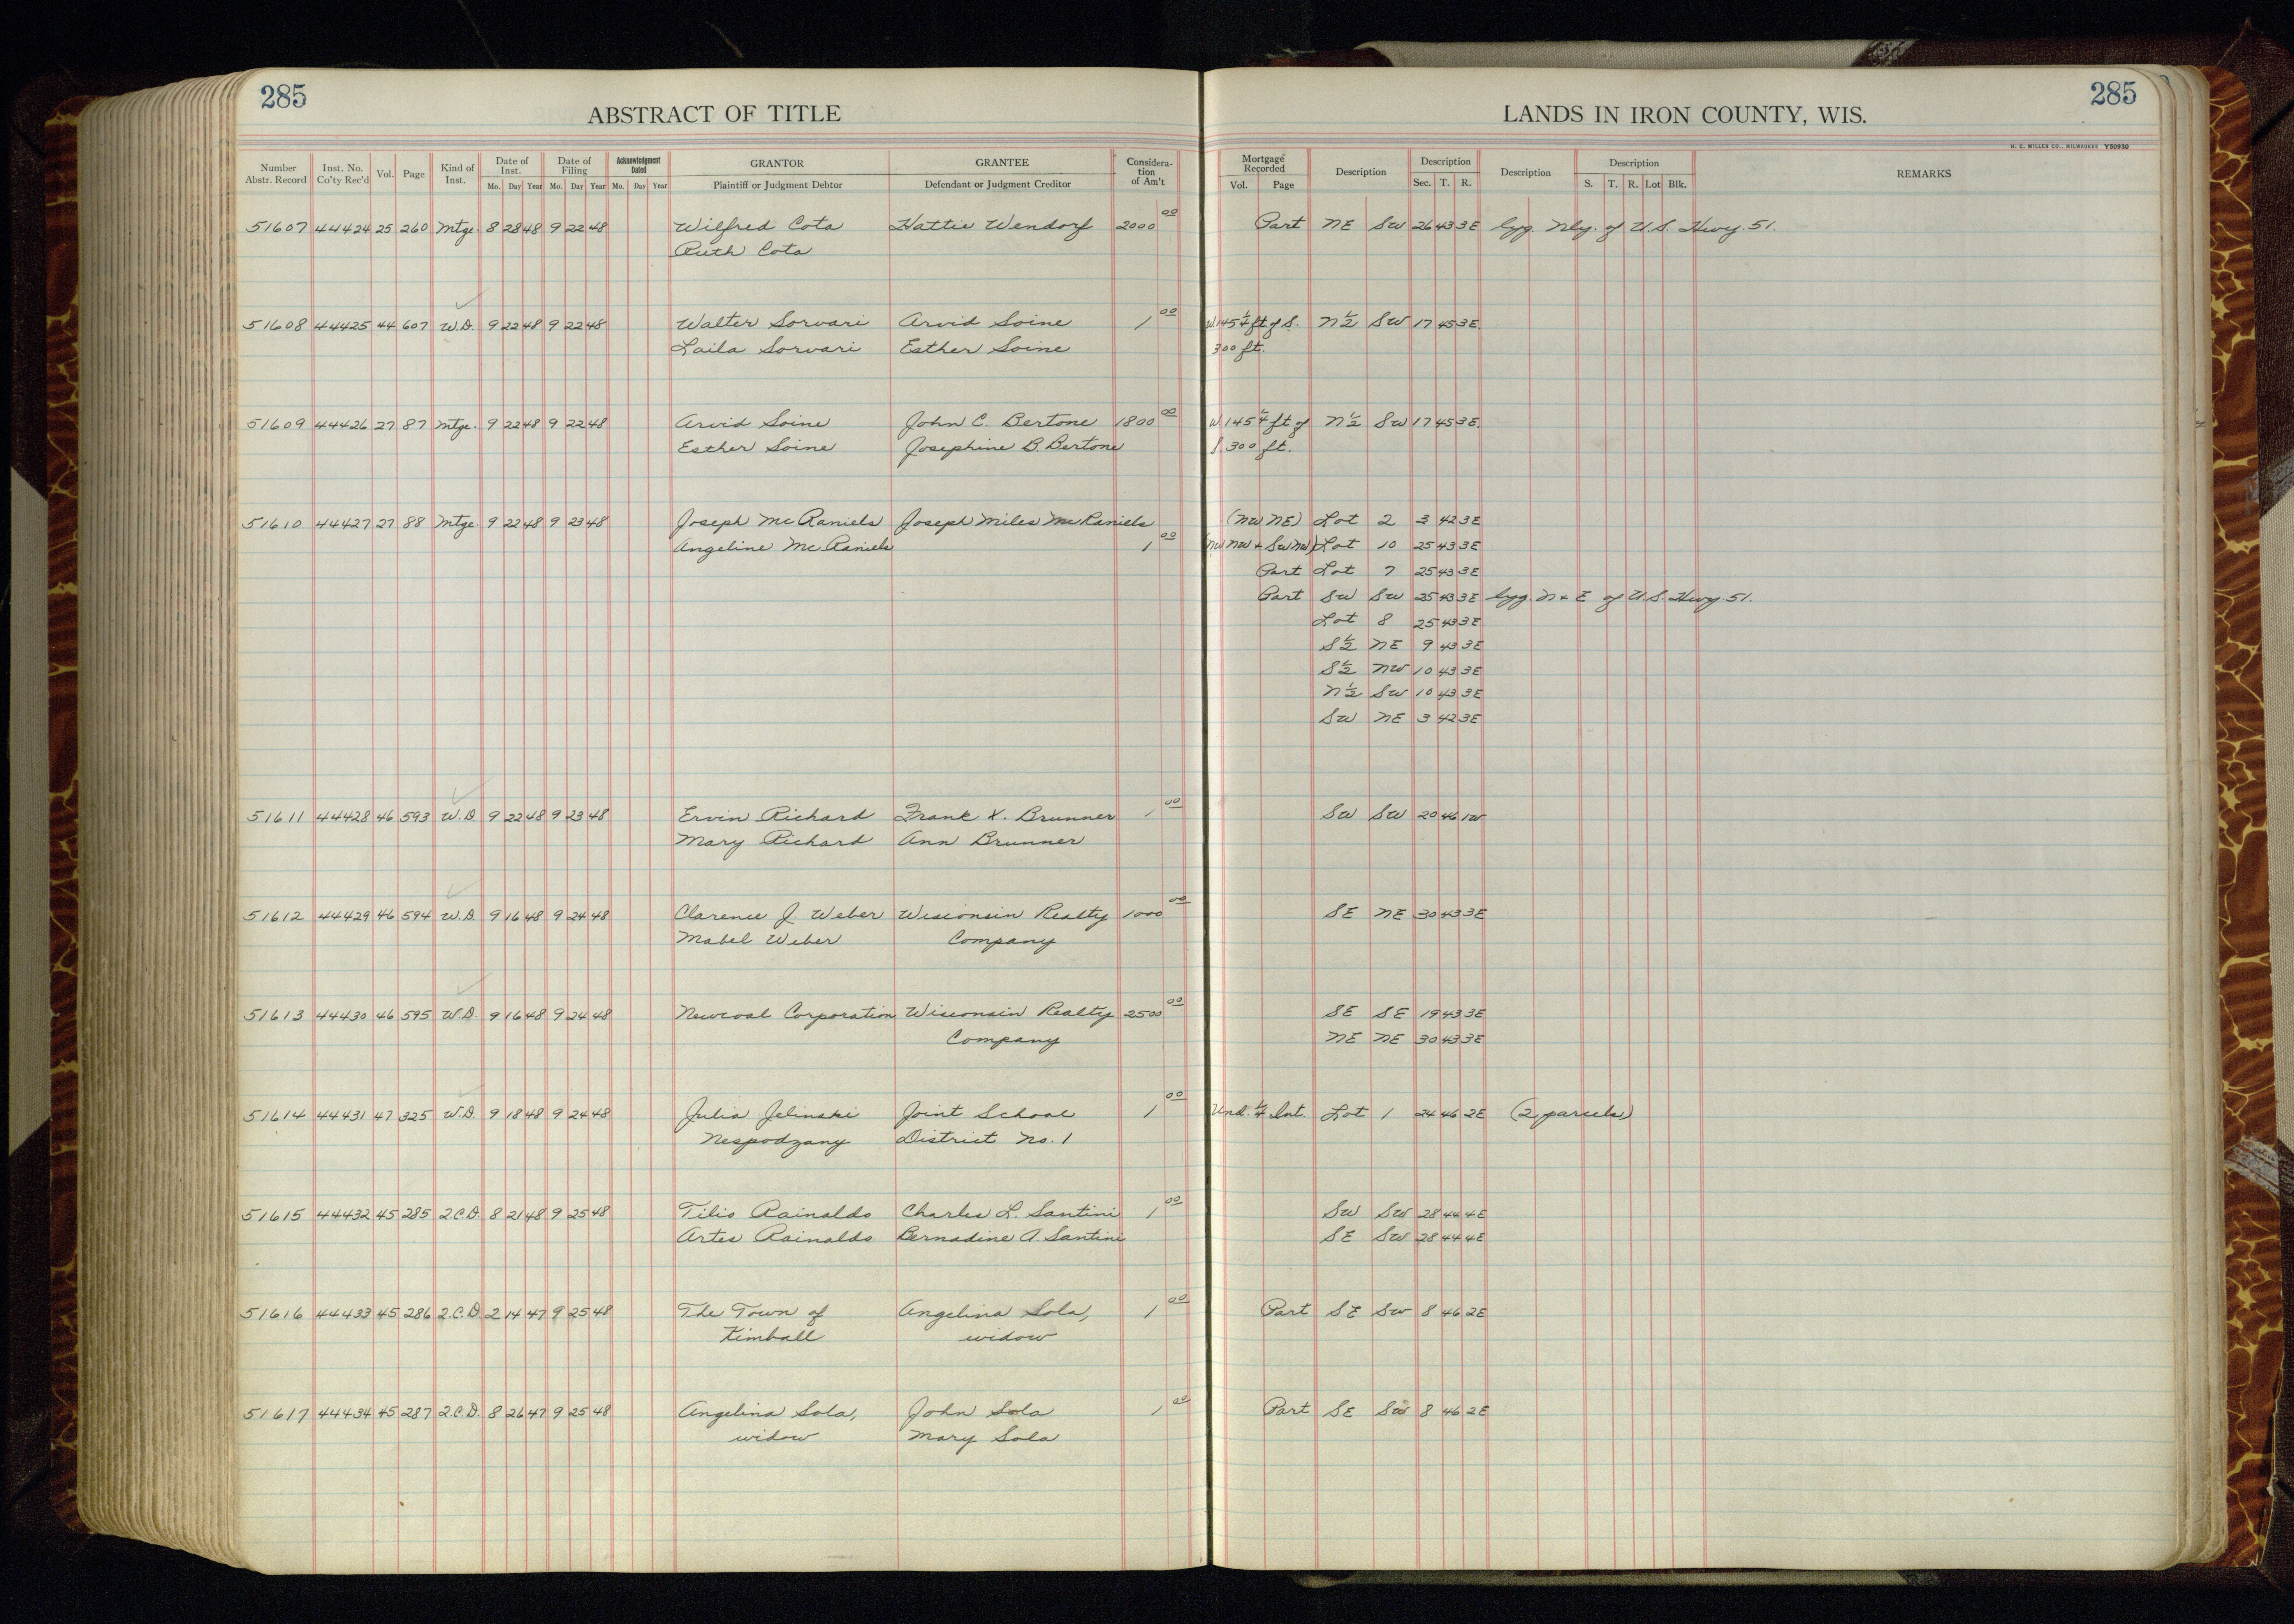 285
285
ABSTRACT OF TITLE
LANDS IN IRON COUNTY, WIS.
H. C. MILLER CO., MILWAUKEE Y50930
Number Abstr. Record Inst. No. Co'ty Rec'd Vol. Page Kind of Inst. Date of Inst. Mo. Day Year Date of Filing Mo. Day Year Acknowledgment Dated Mo. Day Year GRANTOR Plaintiff or Judgment Debtor GRANTEE Defendant or Judgment Creditor Considera-tion of Am't Mortgage Recorded Vol. Page Description Description Sec. T. R. Description Description S. T. R. Lot Blk. REMARKS
51607 44424 25 260 Mtge. 8 28 48 9 22 48 Wilfred Cota Hattie Wendorf 2000 00 Part NE SW 26 43 3E lyg. Nly. of U.S. Hwy. 51.
Ruth Cota
51608 44425 44 607 W.D. 9 22 48 9 22 48 Walter Sorvari Arvid Soine 1 00 W. 145 1/4 ft of S. N 1/2 SW 17 45 3E.
Laila Sorvari Esther Soine 300 ft.
51609 44426 27 87 Mtge. 9 22 48 9 22 48 Arvid Soine John C. Bertone 1800 00 W 145 1/4 ft of N 1/2 SW 17 45 3E.
Esther Soine Josephine B. Bertone S. 300 ft.
51610 44427 27 88 Mtge. 9 22 48 9 23 48 Joseph McRaniels Joseph Miles McRaniels (NW NE) Lot 2 3 42 3E
Angeline McRaniels 1 00 (NW NW + SW NW) Lot 10 25 43 3E
Part Lot 7 25 43 3E
Part SW SW 25 43 3E lyg. N + E of U.S. Hwy. 51.
Lot 8 25 43 3E
S 1/2 NE 9 43 3E
S 1/2 NW 10 43 3E
N 1/2 SW 10 43 3E
SW NE 3 42 3E
51611 44428 46 593 W.D. 9 22 48 9 23 48 Ervin Richard Frank X. Brunner 1 00 SW SW 20 46 1W
Mary Richard Ann Brunner
51612 44429 46 594 W.D. 9 16 48 9 24 48 Clarence J. Weber Wisconsin Realty 1000 00 SE NE 30 43 3E
Mabel Weber Company
51613 44430 46 595 W.D. 9 16 48 9 24 48 Newcoal Corporation Wisconsin Realty 2500 00 SE SE 19 43 3E
Company NE NE 30 43 3E
51614 44431 47 325 W.D. 9 18 48 9 24 48 Julia Jelinski Joint School 1 00 Und. 1/4 Int. Lot 1 24 46 2E (2 parcels)
Nespodzany District No. 1
51615 44432 45 285 2.C.D. 8 21 48 9 25 48 Tilio Rainaldo Charles L. Santini 1 00 SW SW 28 44 4E
Artes Rainaldo Bernadine A. Santini SE SW 28 44 4E
51616 44433 45 286 2.C.D. 2 14 47 9 25 48 The Town of Angelina Sola, 1 00 Part SE SW 8 46 2E
Kimball widow
51617 44434 45 287 2.C.D. 8 26 47 9 25 48 Angelina Sola, John Sola 1 00 Part SE SW 8 46 2E
widow Mary Sola